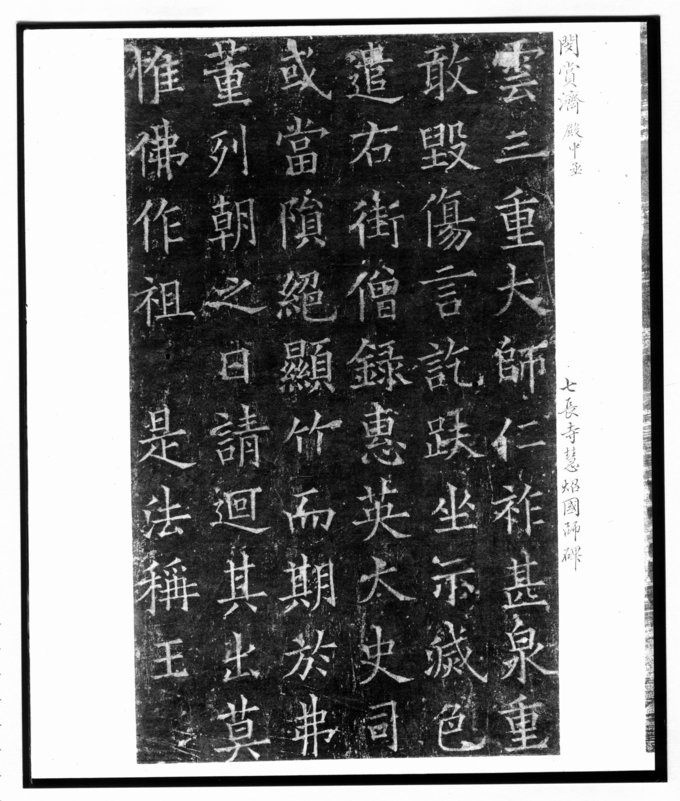 閔賞濟 殿中丞
七長寺慧炤國師碑
雲三重大師仁祚甚泉重
敢毀傷言訖趺坐示滅色
遣右街僧錄惠英太史司
或當隕絕顯竹而期於弗
董列朝之日請迴其出莫
惟佛作祖 是法稱王